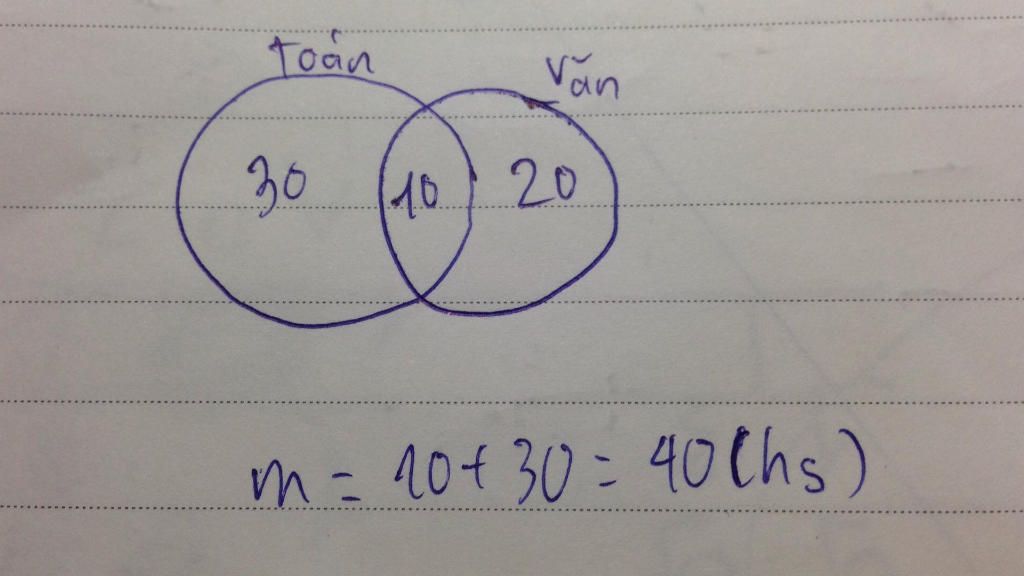 Toán
Văn
30 10 20
m = 10 + 30 = 40 (hs)